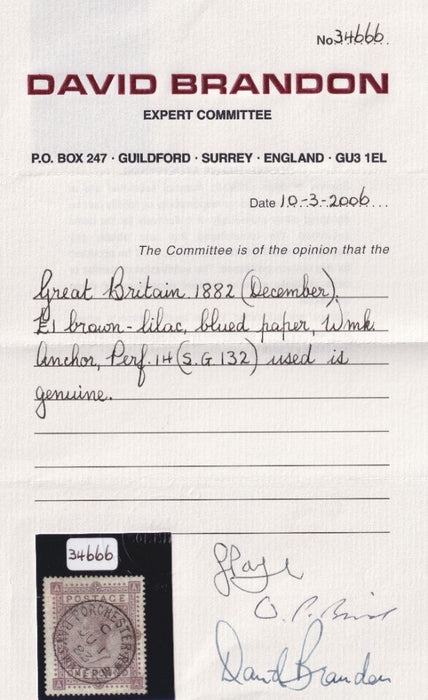 No 34666
DAVID BRANDON
EXPERT COMMITTEE
P.O. BOX 247 · GUILDFORD · SURREY · ENGLAND · GU3 1EL
Date 10-3-2006
The Committee is of the opinion that the
Great Britain. 1882 (December).
£1 brown-lilac, blued paper, Wmk.
Anchor, Perf. 14 (S.G. 132) used is
genuine.
34666
POSTAGE
David Brandon